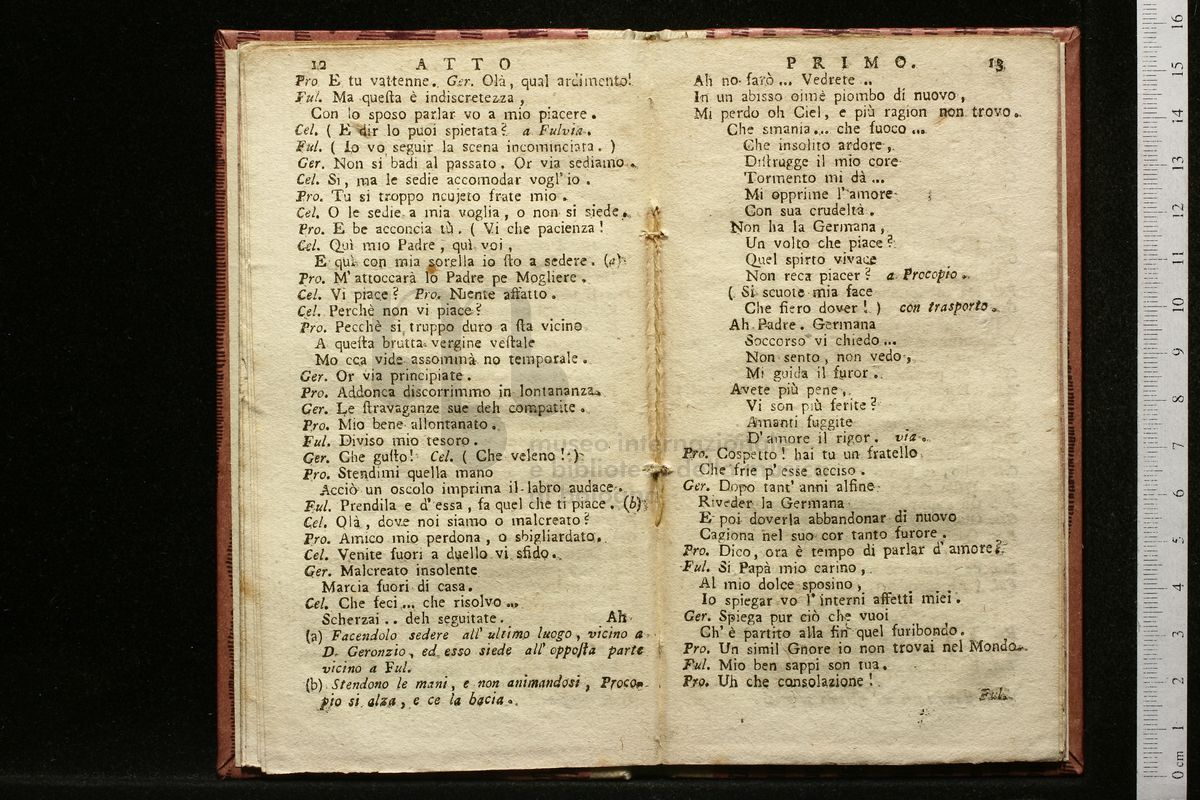 12 ATTO
Pro E tu vattenne. Ger. Olà, qual ardimento!
Ful. Ma questa è indiscretezza,
Con lo sposo parlar vo a mio piacere.
Cel. ( E dir lo puoi spietata? a Fulvia.
Ful. ( Io vo seguir la scena incominciata. )
Ger. Non si badi al passato. Or via sediamo.
Cel. Si, ma le sedie accomodar vogl' io.
Pro. Tu si troppo ncujeto frate mio.
Cel. O le sedie a mia voglia, o non si siede.
Pro. E be acconcia tù. ( Vi che pacienza!
Cel. Quì mio Padre, quì voi,
E quì con mia sorella io sto a sedere. (a)
Pro. M' attoccarà lo Padre pe Mogliere.
Cel. Vi piace? Pro. Niente affatto.
Cel. Perchè non vi piace?
Pro. Pecchè si truppo duro a sta vicino
A questa brutta vergine vestale
Mo cca vide assommà no temporale.
Ger. Or via principiate.
Pro. Addonca discorrimmo in lontananza.
Ger. Le stravaganze sue deh compatite.
Pro. Mio bene allontanato.
Ful. Diviso mio tesoro.
Ger. Che gusto! Cel. ( Che veleno! )
Pro. Stendimi quella mano
Acciò un oscolo imprima il labro audace.
Ful. Prendila e d' essa, fa quel che ti piace. (b)
Cel. Olà, dove noi siamo o malcreato?
Pro. Amico mio perdona, o sbigliardato.
Cel. Venite fuori a duello vi sfido.
Ger. Malcreato insolente
Marcia fuori di casa.
Cel. Che feci ... che risolvo ...
Scherzai .. deh seguitate. Ah
(a) Facendolo sedere all' ultimo luogo, vicino a
D. Geronzio, ed esso siede all' opposta parte
vicino a Ful.
(b) Stendono le mani, e non animandosi, Proco-
pio si alza, e ce la bacia.
PRIMO. 13
Ah no farò ... Vedrete ..
In un abisso oimè piombo di nuovo,
Mi perdo oh Ciel, e più ragion non trovo.
Che smania ... che fuoco ...
Che insolito ardore,
Distrugge il mio core
Tormento mi dà ...
Mi opprime l' amore
Con sua crudeltà.
Non ha la Germana,
Un volto che piace?
Quel spirto vivace
Non reca piacer? a Procopio.
( Si scuote mia face
Che fiero dover! ) con trasporto.
Ah Padre. Germana
Soccorso vi chiedo ...
Non sento, non vedo,
Mi guida il furor.
Avete più pene,
Vi son più ferite?
Amanti fuggite
D' amore il rigor. via.
Pro. Cospetto! hai tu un fratello
Che frie p' esse acciso.
Ger. Dopo tant' anni alfine
Riveder la Germana
E poi doverla abbandonar di nuovo
Cagiona nel suo cor tanto furore.
Pro. Dico, ora è tempo di parlar d' amore?
Ful. Si Papà mio carino,
Al mio dolce sposino,
Io spiegar vo l' interni affetti miei.
Ger. Spiega pur ciò che vuoi
Ch' è partito alla fin quel furibondo.
Pro. Un simil Gnore io non trovai nel Mondo.
Ful. Mio ben sappi son tua.
Pro. Uh che consolazione!
Ful.
museo internazionale
e biblioteca della